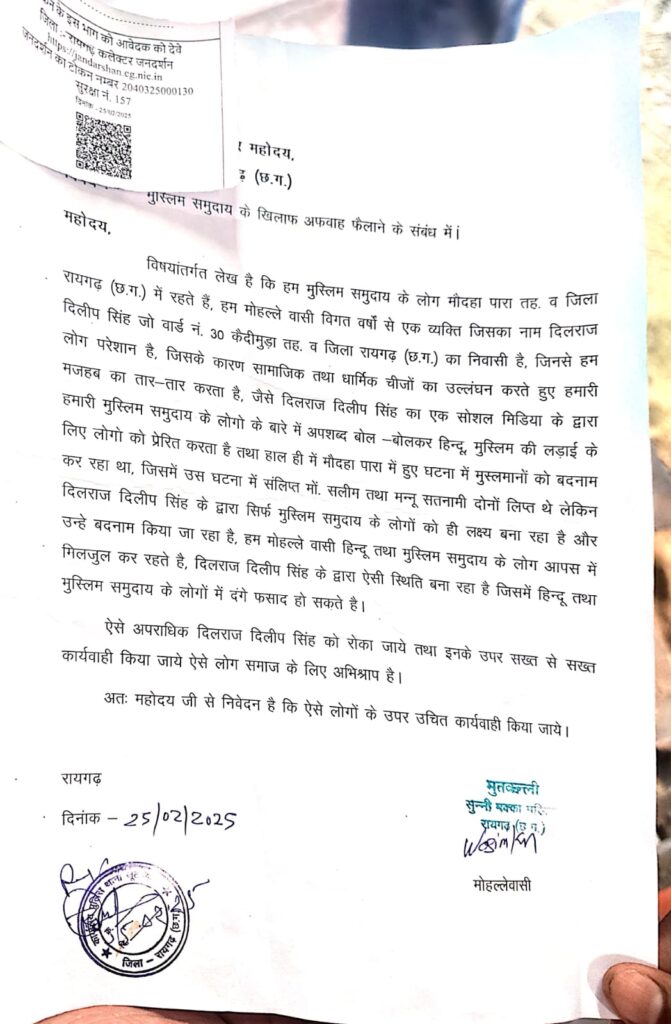 के इस भाग को आवेदक को देवे
जिला:- रायगढ़ कलेक्टर जनदर्शन
https://jandarshan.cg.nic.in
जनदर्शन का टोकन नम्बर 2040325000130
सुरक्षा नं. 157
दिनांक - 25/02/2025
महोदय,
(छ.ग.)
मुस्लिम समुदाय के खिलाफ अफवाह फैलाने के संबंध में।
महोदय,
विषयांतर्गत लेख है कि हम मुस्लिम समुदाय के लोग मौदहा पारा तह. व जिला
रायगढ़ (छ.ग.) में रहते हैं, हम मोहल्ले वासी विगत वर्षों से एक व्यक्ति जिसका नाम दिलराज
दिलीप सिंह जो वार्ड नं. 30 कैदीमुड़ा तह. व जिला रायगढ़ (छ.ग.) का निवासी है, जिनसे हम
लोग परेशान है, जिसके कारण सामाजिक तथा धार्मिक चीजों का उल्लंघन करते हुए हमारी
मजहब का तार–तार करता है, जैसे दिलराज दिलीप सिंह का एक सोशल मिडिया के द्वारा
हमारी मुस्लिम समुदाय के लोगो के बारे में अपशब्द बोल –बोलकर हिन्दू, मुस्लिम की लड़ाई के
लिए लोगो को प्रेरित करता है तथा हाल ही में मौदहा पारा में हुए घटना में मुस्लमानों को बदनाम
कर रहा था, जिसमें उस घटना में संलिप्त मों. सलीम तथा मन्नू सतनामी दोनों लिप्त थे लेकिन
दिलराज दिलीप सिंह के द्वारा सिर्फ मुस्लिम समुदाय के लोगों को ही लक्ष्य बना रहा है और
उन्हे बदनाम किया जा रहा है, हम मोहल्ले वासी हिन्दू तथा मुस्लिम समुदाय के लोग आपस में
मिलजुल कर रहते है, दिलराज दिलीप सिंह के द्वारा ऐसी स्थिति बना रहा है जिसमें हिन्दू तथा
मुस्लिम समुदाय के लोगों में दंगे फसाद हो सकते है।
ऐसे अपराधिक दिलराज दिलीप सिंह को रोका जाये तथा इनके उपर सख्त से सख्त
कार्यवाही किया जाये ऐसे लोग समाज के लिए अभिश्राप है।
अतः महोदय जी से निवेदन है कि ऐसे लोगों के उपर उचित कार्यवाही किया जाये।
रायगढ़
दिनांक – 25/02/2025
मुतवल्ली
सुन्नी मक्का
रायगढ़ (छ ग.)
मोहल्लेवासी
जिला – रायगढ़ (छ.ग.)